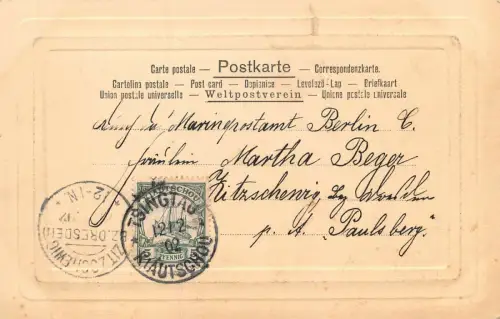 Carte postale — Postkarte — Correspondenzkarte.
Cartolina postale — Post card — Dopisnice — Levelező-Lap — Briefkaart
Union postale universelle — Weltpostverein — Unione postale universale
durch d. Marinepostamt Berlin C.
Fräulein Martha Beger
Kitzschenbg b/
p. A. "Paulsberg".
TSINGTAU
12 12
02
KIAUTSCHOU
PFENNIG
12-1N.
(BZ. DRESDEN)